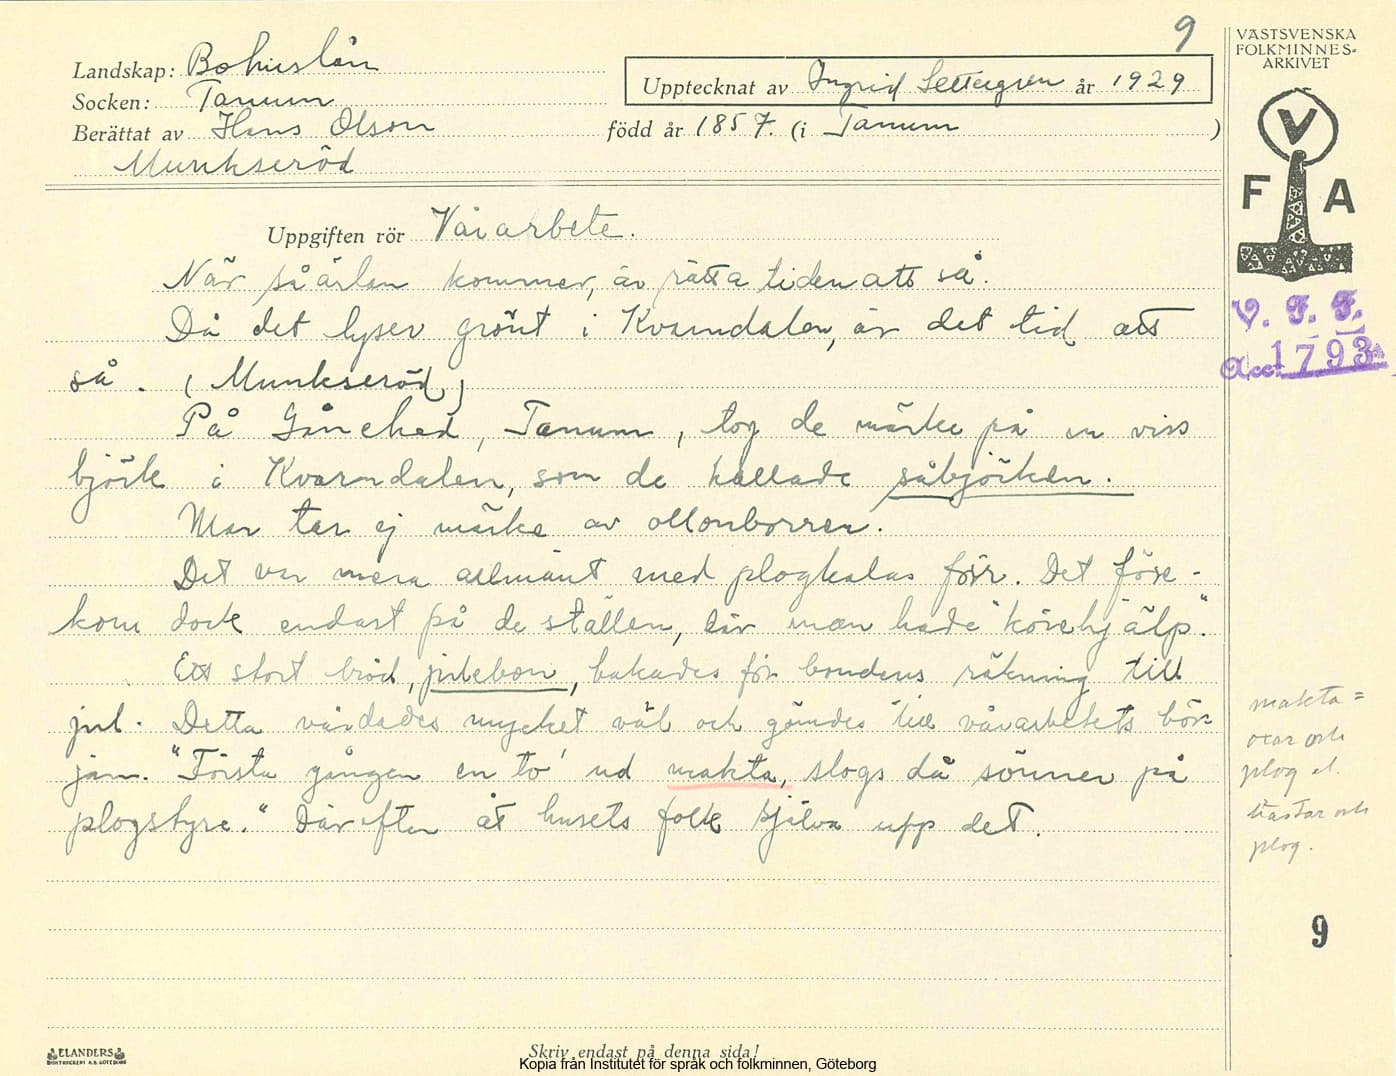 9
Landskap: Bohuslän
Socken: Tanum
Berättat av Hans Olson
Munkseröd
Upptecknat av Ingrid Settergren år 1929
född år 1857. (i Tanum)
VÄSTSVENSKA
FOLKMINNES-
ARKIVET
V
F A
V. F. F.
Acc. 1793
Uppgiften rör Vårarbete.
När såärlan kommer, är rätta tiden att så.
Då det lyser grönt i Kvarndalen, är det tid att
så. (Munkseröd)
På Gånehed, Tanum, tog de märke på en viss
björk i Kvarndalen, som de kallade såbjörken.
Man tar ej märke av ollonborren.
Det var mera allmänt med plogkalas förr. Det före-
kom dock endast på de ställen, där man hade "körehjälp".
Ett stort bröd, julebon, bakades för bondens räkning till
jul. Detta vårdades mycket väl och gömdes till vårarbetets bör-
jan. "Första gången en to' ud makta, slogs då sönner på
plogstyre." Därefter åt husets folk själva upp det.
makta =
oxar och
plog el.
hästar och
plog.
9
ELANDERS
BOKTRYCKERI A.B. GÖTEBORG
Skriv endast på denna sida!
Kopia från Institutet för språk och folkminnen, Göteborg